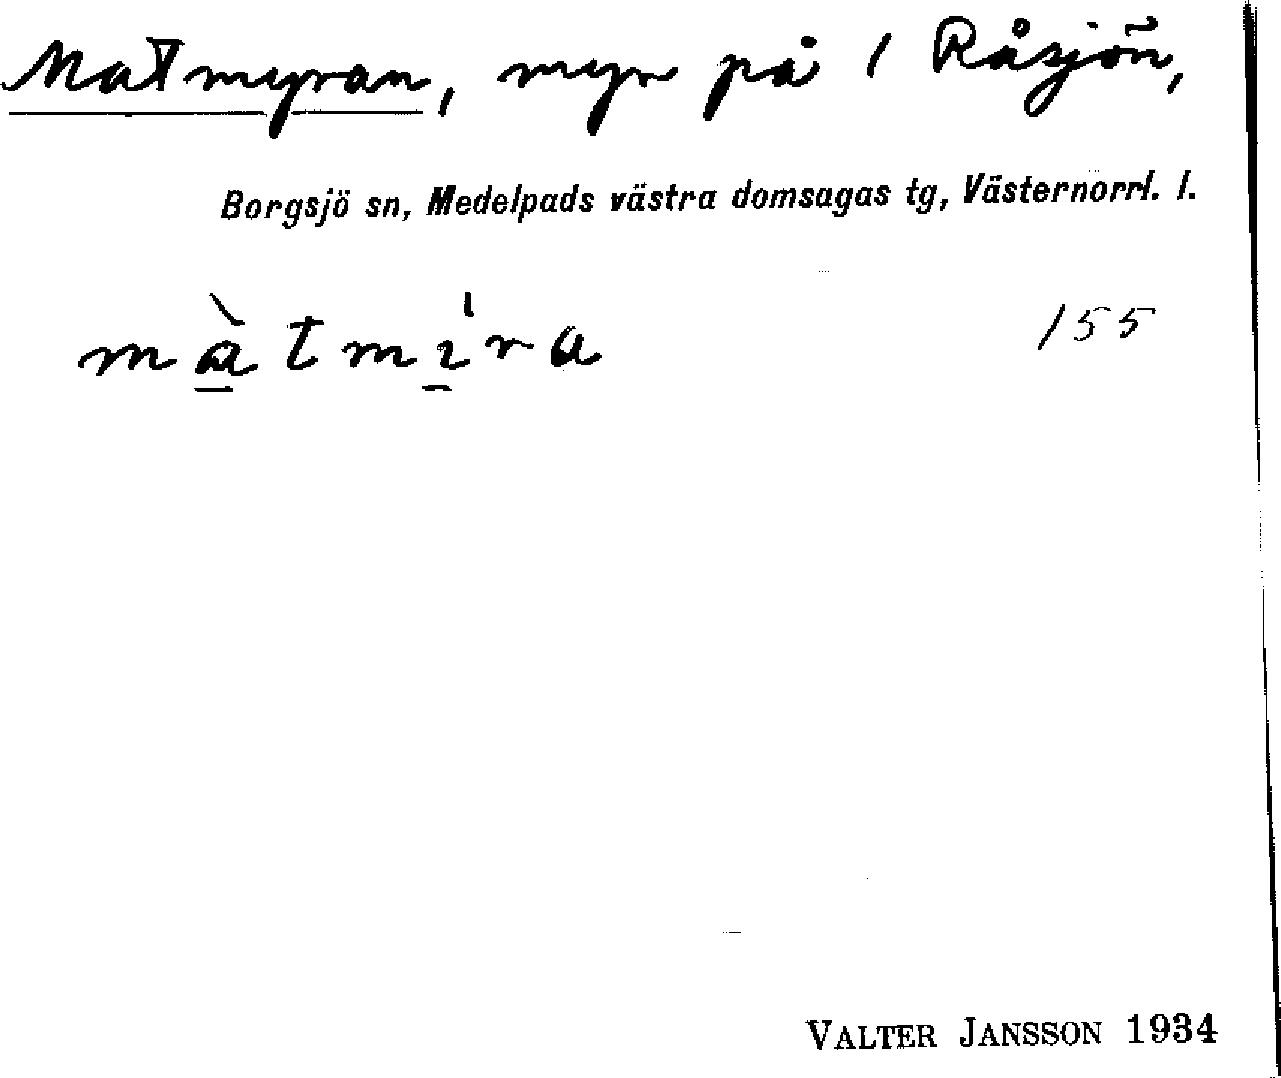 Matmyran, myr på 1 Råsjön,
Borgsjö sn, Medelpads västra domsagas tg, Västernorrl. l.
màtmı̍ra 155
VALTER JANSSON 1934